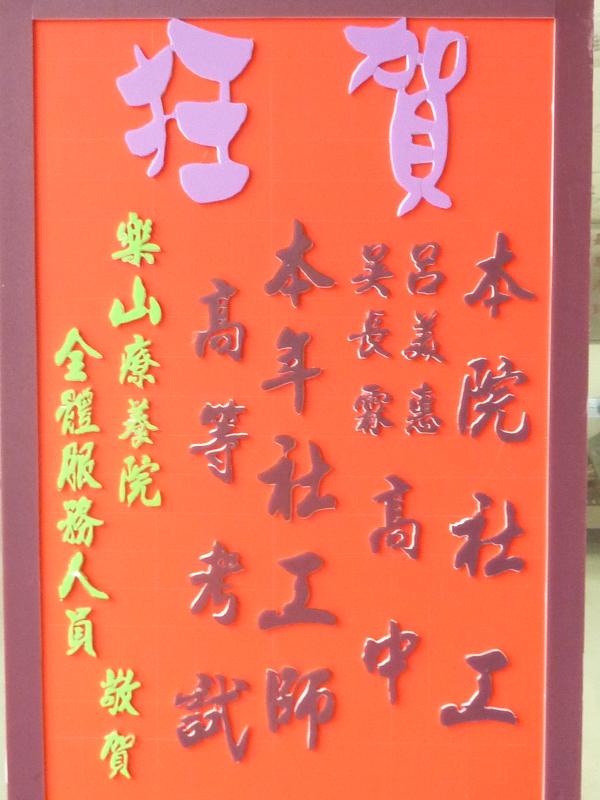 賀狂
本院社工
呂美惠
吳長霖
高中
本年社工師
高等考試
樂山療養院
全體服務人員
敬賀